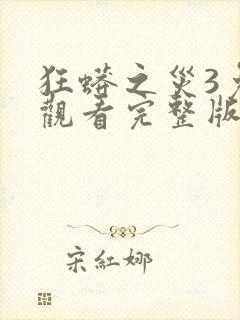 狂蟒之災3
觀看完整版
宋紅娜